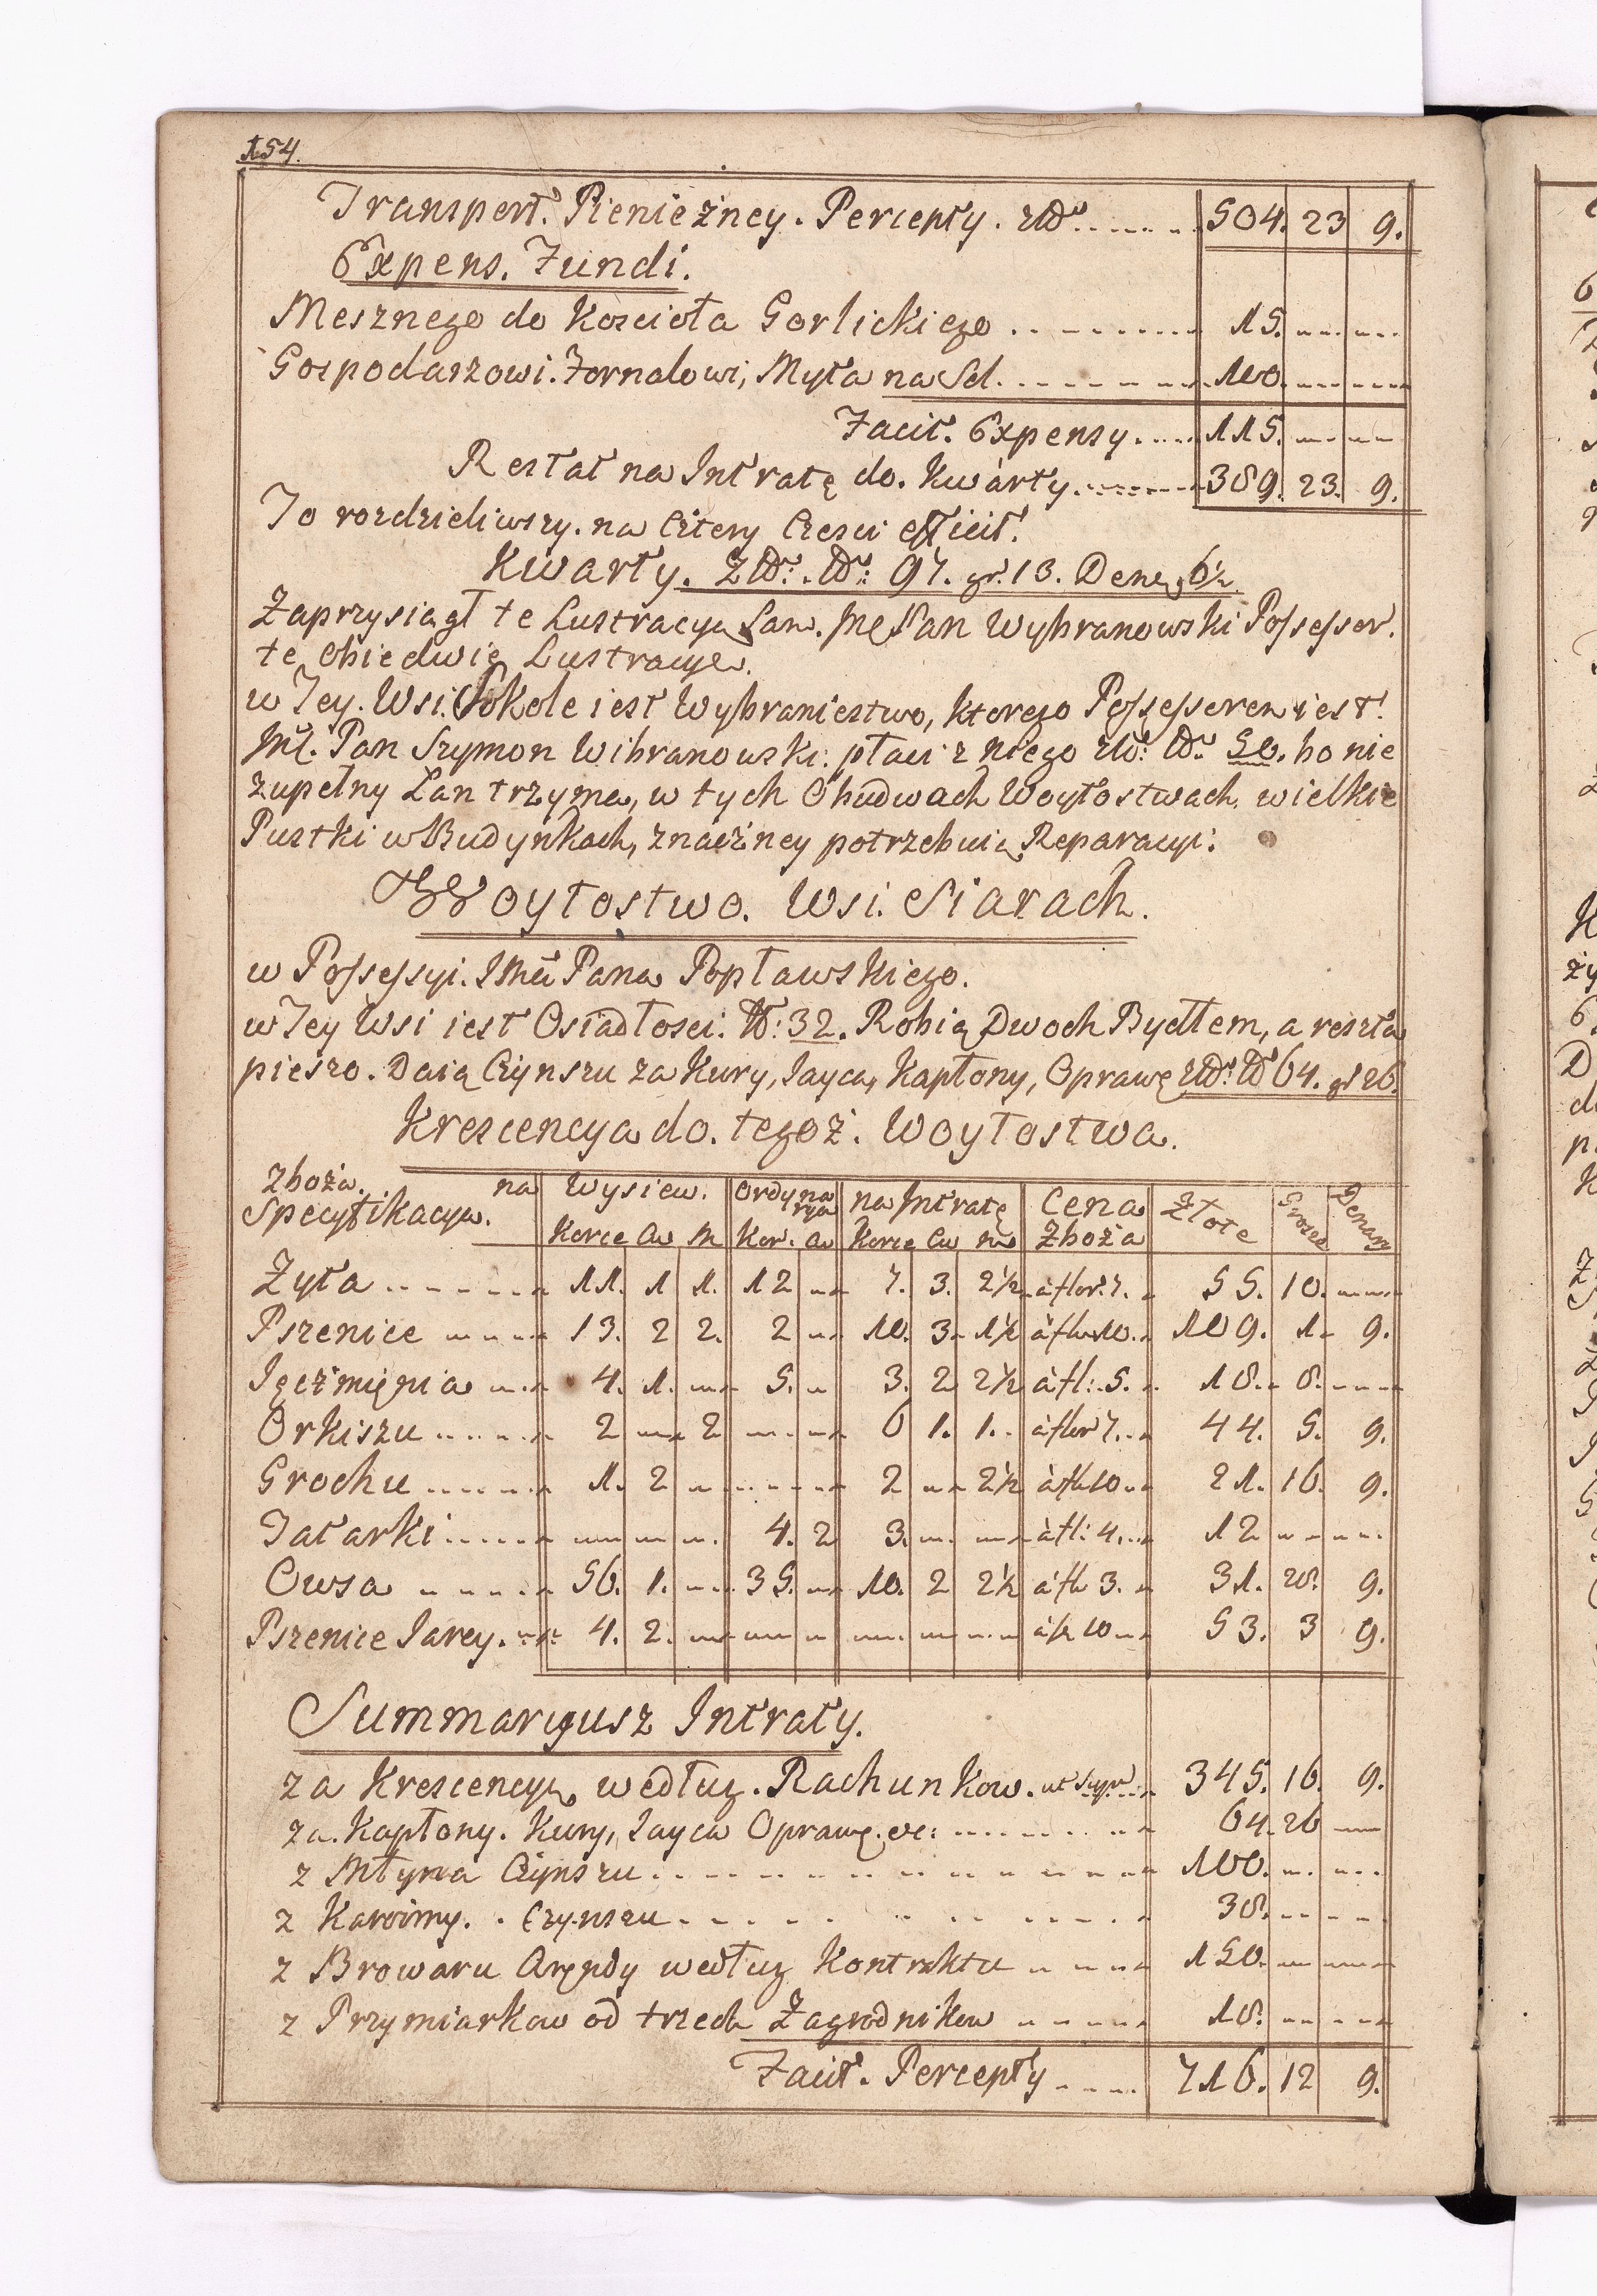 154.
Transport. Pienieżney. Percepty. złłᵂ ...... 504. 23 9.
Expens. Fundi.
Mesznego do Koscioła Gorlickiego .......... 15. ... ...
Gospodarzowi. Fornalowi, Myta na Sol. ........ 100. ... ...
Facit. Expensy .... 115. ... ...
Restat na Intratę do. Kwarty. ....... 389. 23. 9.
To rozdzieliwszy. na Cztery Czesci efficit.
Kwarty. Złł: N: 97. gr. 13. Dena, 6½
Zaprzysiągł te Lustracyą Sam. JMę Pan Wybranowski Possessor.
te obiedwie Lustracye.
w Tey. Wsi. Sokole iest Wybraniestwo, ktorego Possessorem iest.
JMć. Pan Szymon Wibranowski: płaci z niego złł: N: 50. bo nie
zupełny Łan trzyma, w tych Obudwach Woytostwach. wielkie
Pustki w Budynkach, znaczney potrzebuią Reparacyi:
Woytostwo. Wsi. Siarach.
w Possessyi. JMći Pana Popławskiego.
w Tey Wsi iest Osiadłosci. N: 32. Robią Dwoch Bydłem, a reszta
pieszo. Daią Czynszu za Kury, Jayca, Kapłony, Oprawę złł: N 64. gr 26.
Krescencya do. tegoż. Woytostwa.
Zboża. na Wysiew. Ordynarya na Intratę Cena Złote Grosze Denary
Specyfikacya. Korce Ćw M Kor. Ćw Korce Ćw M Zboża
Zyta ...... 11. 1 1. 12 .. 7. 3. 2½ à flor. 7. 55. 10. ....
Pszenice .... 13. 2 2. 2 .. 10. 3. 1½ à flo 10. 109. 1. 9.
Ięczmięnia ... 4. 1. ... 5. .. 3. 2 2½ à fl: 5. 18. 8. ....
Orkiszu ..... 2 ... 2 ... ... 6 1. 1. à flor 7. 44. 5. 9.
Grochu ..... 1. 2 ... ... ... 2 ... 2½ à flo 10 21. 16. 9.
Tatarki ..... ... ... ... 4. 2 3. ... ... à fl: 4. 12 ... ...
Owsa ..... 56. 1. ... 35. .. 10. 2 2½ à flo 3. 31. 28. 9.
Pszenice Jarey. ... 4. 2. ... ... ... ... ... ... à fl 10 53. 3 9.
Summaryusz Intraty.
za Krescencyą według. Rachunkow. ut supr. ... 345. 16. 9.
za. Kapłony. Kury, Jayca Oprawę. etc: ........ 64. 26 ...
z Młyna Czynszu .............. 100. ... ...
z Karczmy. . Czynszu ........... 38. ... ...
z Browaru Aręndy według Kontraktu ..... 150. ... ...
z Przymiarkow od trzech Zagrodnikow ..... 18. ... ...
Facit. Percepty .... 716. 12 9.